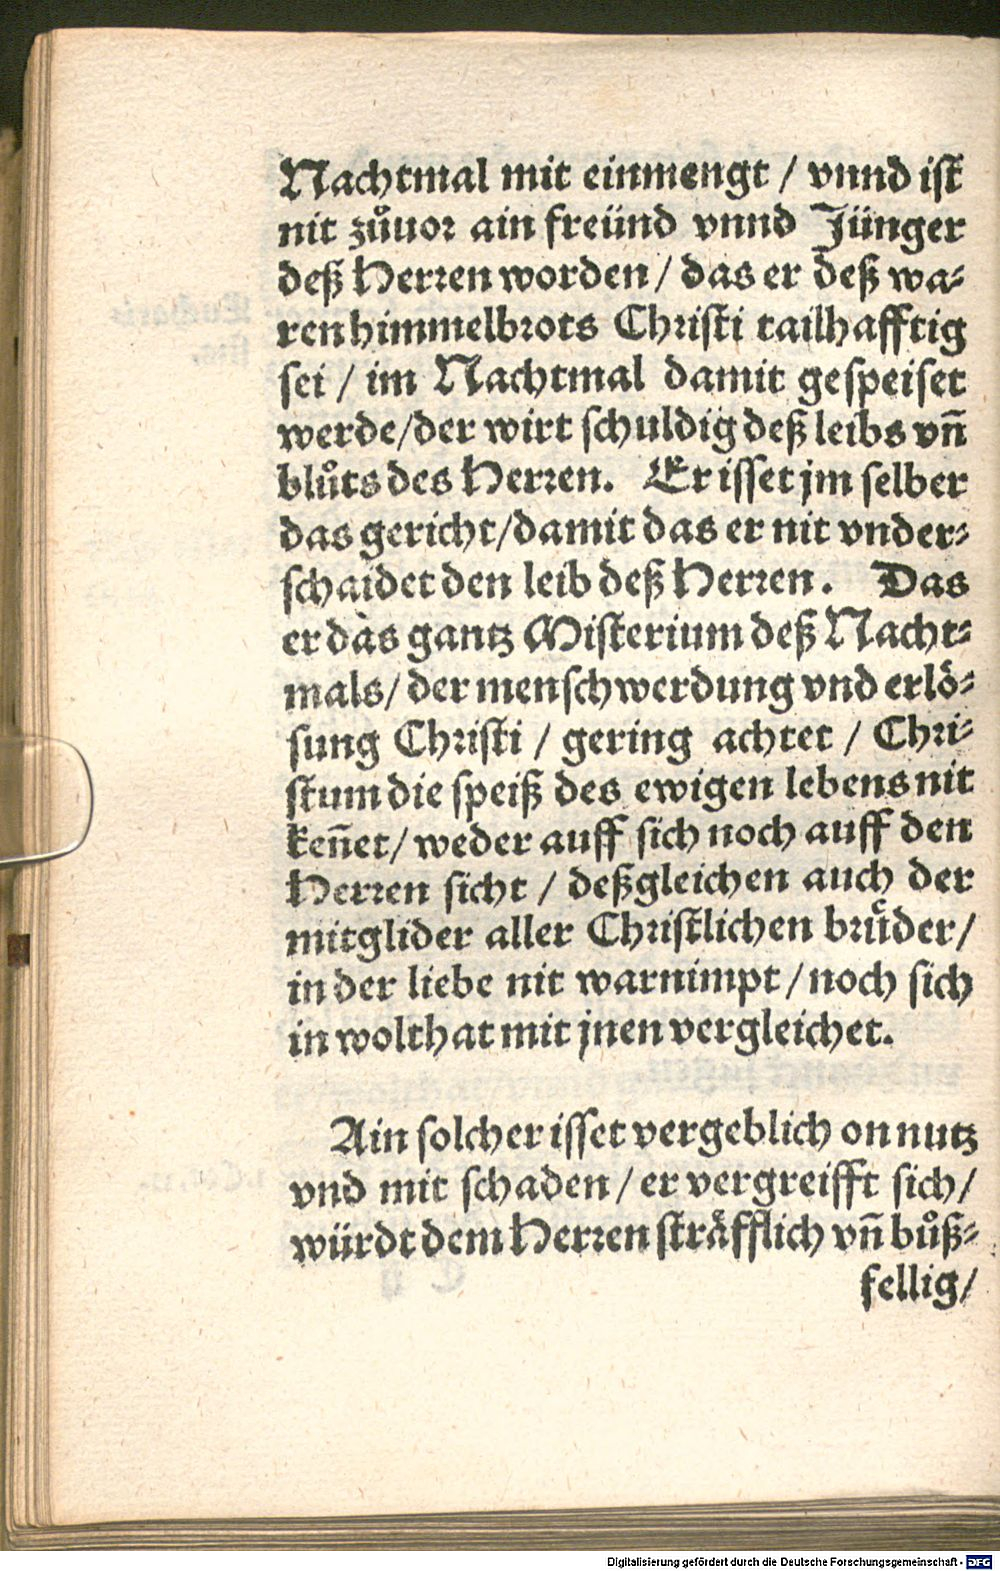 Nachtmal mit einmengt / vnnd iſt
nit zůuor ain freünd vnnd Jünger
deß Herren worden / das er deß wa⸗
ren himmelbrots Chriſti tailhafftig
sei / im Nachtmal damit geſpeiſet
werde / der wirt ſchuldig deß leibs vn̄
blůts des Herren. Er iſſet jm ſelber
das gericht / damit das er nit vnder⸗
ſchaidet den leib deß Herren. Das
er das gantz Miſterium deß Nacht⸗
mals / der menſchwerdung vnd erlö⸗
ſung Chriſti / gering achtet / Chri⸗
ſtum die ſpeiß des ewigen lebens nit
ken̄et / weder auff ſich noch auff den
Herren ſicht / deßgleichen auch der
mitglider aller Chriſtlichen brüder /
in der liebe nit warnimpt / noch ſich
in wolthat mit jnen vergleichet.
Ain ſolcher iſſet vergeblich on nutz
vnd mit ſchaden / er vergreifft ſich /
würdt dem Herren ſträfflich vn̄ bůß⸗
fellig /
Digitalisierung gefördert durch die Deutsche Forschungsgemeinschaft - DFG